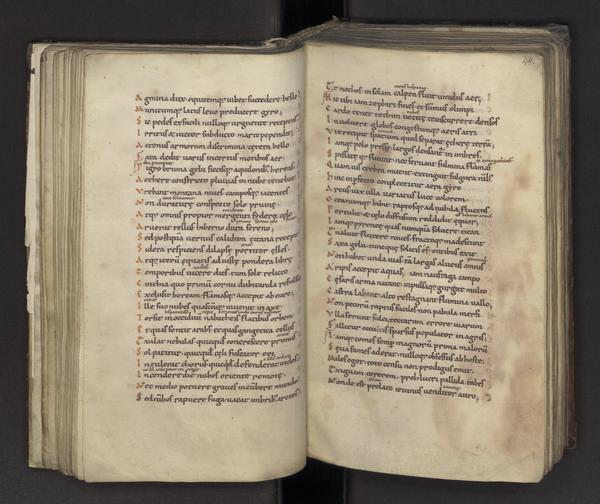 Agmina dux· equitemq; iubet succedere bello
Munitumq; latus leuo producere gyro;
Sic pedes ex facili nulloq; urguente receptus
Irritus & uictor subducto marte pependit;
Actenus armorum discrimina· cetera bello
Fata dedit uariis incertus motibus aer·
Pigro bruma gelu siccisq; aquilonib; herens
Aethere constricto pluuias in nube tenebat·
Urebant montana niues camposq; iacentes
Non duraturę conspecto sole pruinę·
Atq; omnis propior mergenti sydera cęlo
Aruerat tellus hiberno dura sereno;
Sed postquā uernus calidum titana recepit
Sidera respiciens delapsę portitor elles·
Atq; iterum ęquatis ad iustę pondera librę
Temporibus uicere dies· tum sole relicto
Cinthia quo primū cornu dubitanda refulsit
Exclusit boream· flāmasq; accepit ab euro;
Ille suo nubes quascūq; inuenit in axe
Torsit in occiduū nabatheis flatibus orbem
Et quas sentit arabs et quas gangetica tellus
Exalat nebulas· quicquid concrescere primus
Sol patitur· quicquid cęli fuscator eoi
Intulerat chorus· quicqd defenderat indos
Incendere diē nubes oriente remotę
Nec medio potuere graues incūbere mundo
Sed nimbos rapuere fuga· uacat imbrib; arctos
44.
Et nothos· in solam calpen fluit umidus aer;
Hic ubi iam zephiri fines et summus olimpi
Cardo tenet tethim uetitę transcurrere densos
Inuoluere globos· congestumq; aeris atri
Vix recipit spatium quod separat ethere terrā;
Iamq; polo pressę largos densantur in imbres
Spissatęq; fluunt· nec seruant fulmina flāmas
Quamuis crebra micent· extingunt fulgura nimbi;
Hinc inpfecto complectitur aera gyro
Arcus uix ulla uariatus luce colorem·
Oceanumq; bibit· raptosq; ad nubila fluctus
Pertulit· & cęlo diffusum reddidit equor;
Iamq; pyreneę quas numquā soluere titan
Eualuit fluxere niues· fractoq; madescunt
Saxa gelu· tunc quę solitis e fontibus exit
Non habet unda uias· tā largas alueus amnis
A ripis accepit aquas· iam naufraga campo
Cęsaris arma natant· inpulsaq; gurgite multo
Castra labant· alto restagnant flumina uallo;
Non pecorū raptus faciles· non pabula mersi
Ulla ferunt sulci· tectarum errore uiarum
Fallitur occultos sparsus populator in agros;
Iamq; comes semp magnorū prima malorū
Sęua fames aderat· nulloq; obsessus ab hoste
Miles eget· toto censu non prodigus emit
Exiguam cererem· proh lucri pallida tabes
Non deest prolato ieiunus uenditor auro;